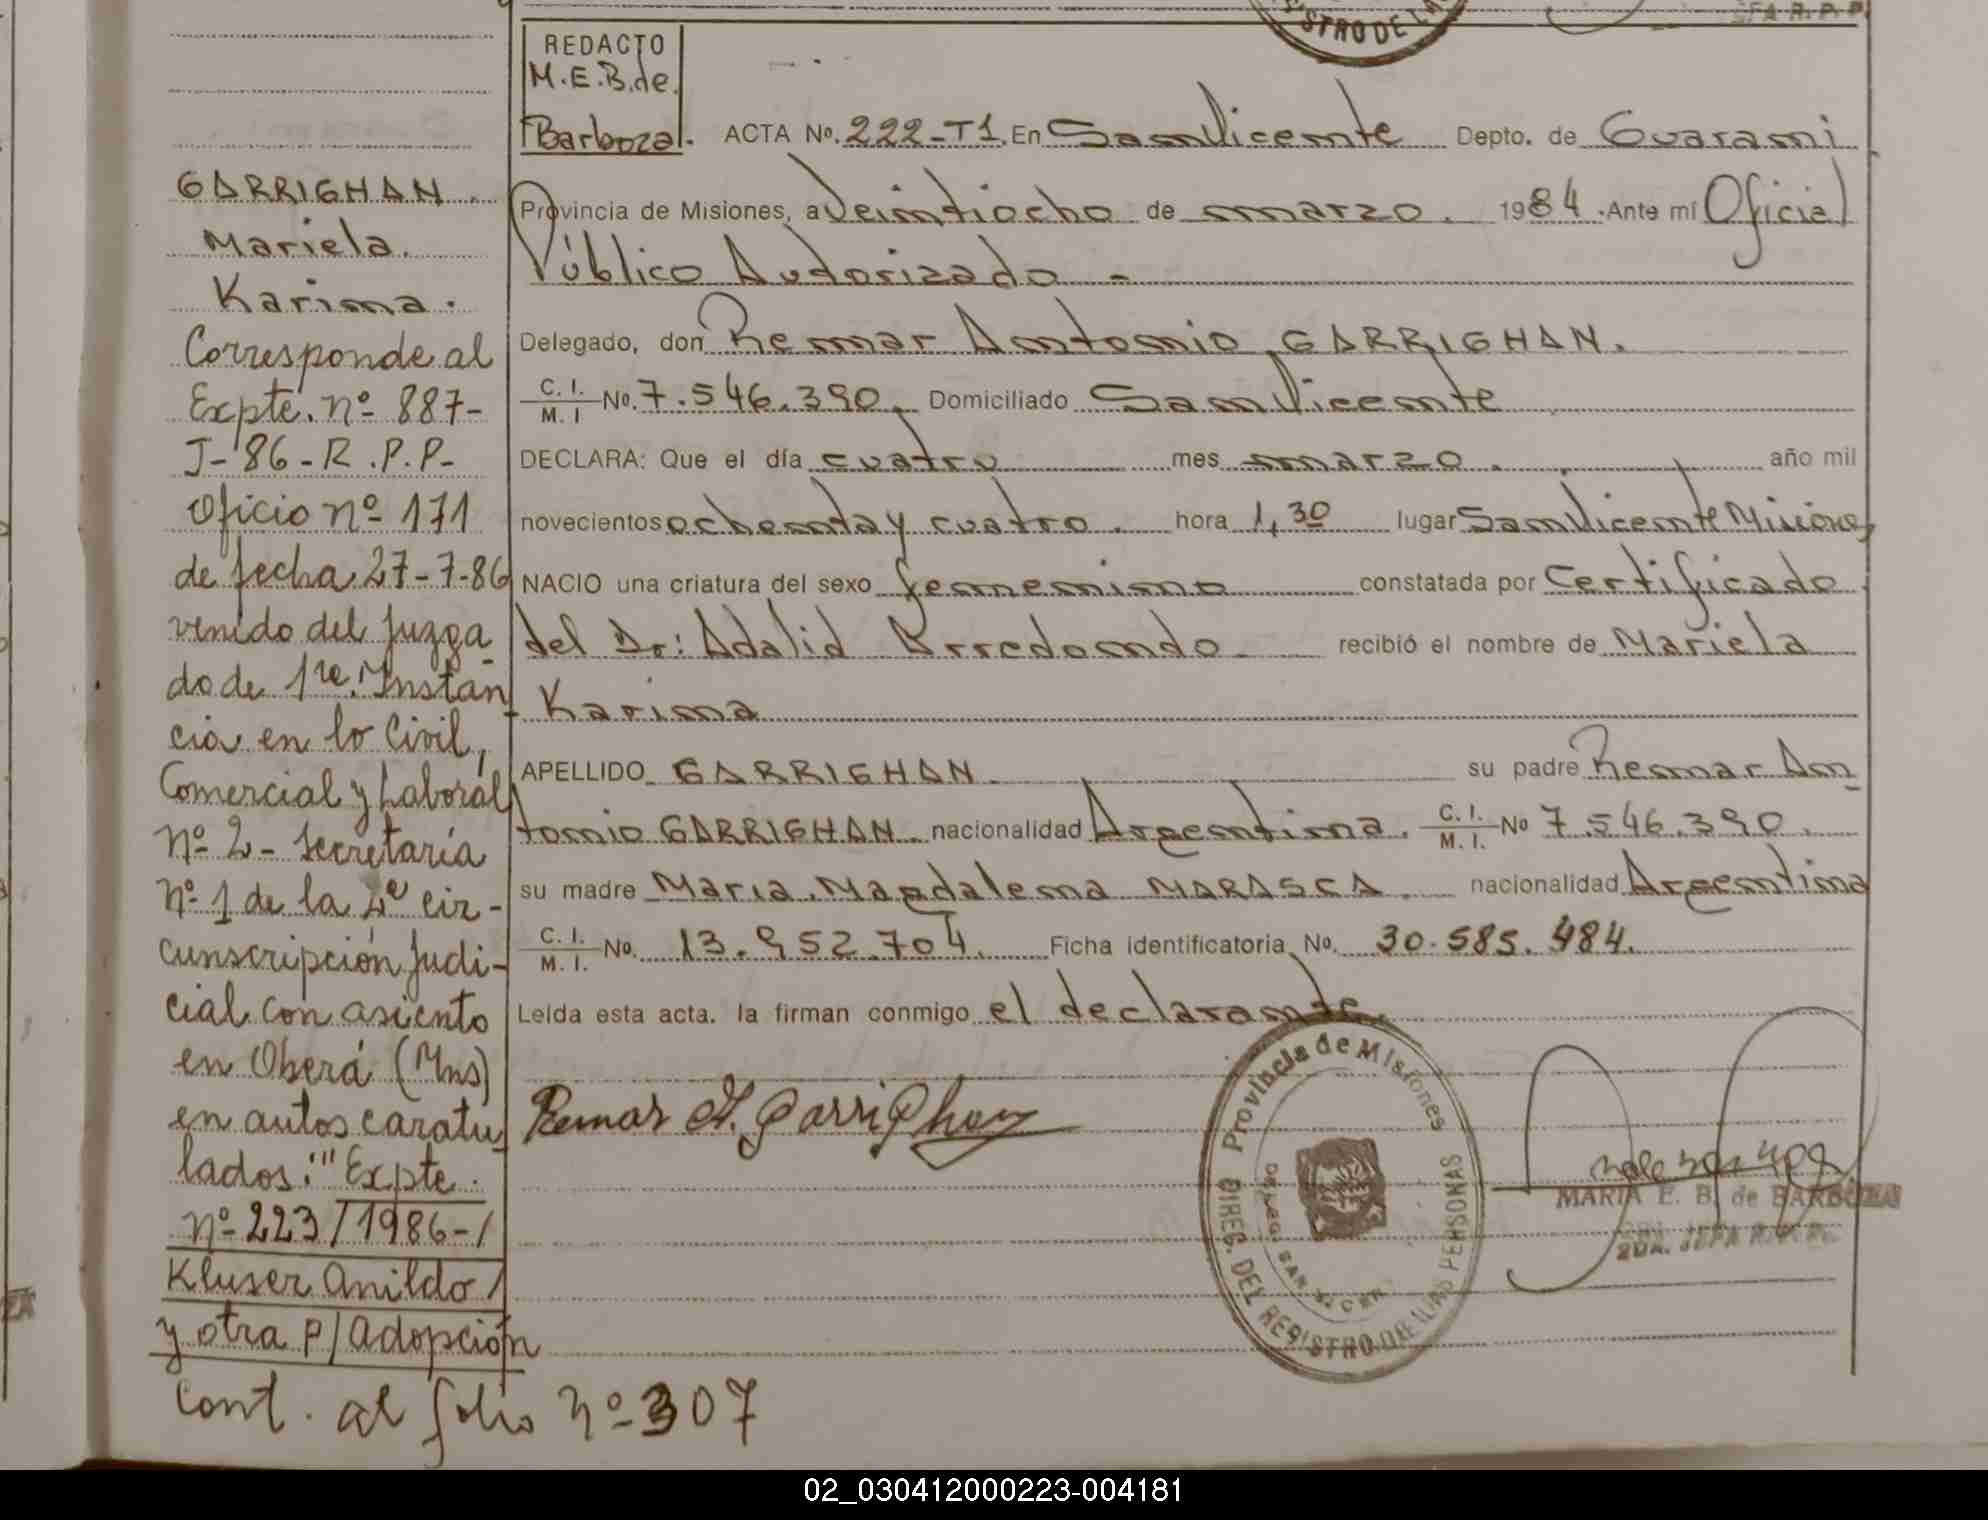 STRO DE LA
FA R. P. P.
REDACTO
M.E.B. de
Barboza.
ACTA No. 222-T1. En San Vicente Depto. de Guarani
Provincia de Misiones, a Veintiocho de marzo. 1984. Ante mí Oficial
Público Autorizado -
Delegado, don Remar Antonio GARRIGHAN.
C. I. / M. I No. 7.546.390, Domiciliado San Vicente
DECLARA: Que el día cuatro mes marzo. año mil
novecientos ochenta y cuatro. hora 1,30 lugar San Vicente Misiones
NACIO una criatura del sexo femenino constatada por Certificado
del Dr: Adalid Arredondo recibió el nombre de Mariela
Karina
APELLIDO GARRIGHAN su padre Remar An
tonio GARRIGHAN. nacionalidad Argentina. C. I. / M. I. No 7.546.390.
su madre Maria Magdalena MARASCA. nacionalidad Argentina
C. I. / M. I. No. 13.952.704. Ficha identificatoria No. 30.585.484.
Leida esta acta. la firman conmigo el declarante.
Remar A. Garrighan
Provincia de Misiones
DIREC. DEL REGISTRO DE LAS PERSONAS
MARIA E. B. de BARBOZA
2DA. JEFA R.P.P.
GARRIGHAN.
Mariela.
Karina.
Corresponde al
Expte. nº 887-
J-86-R.P.P-
Oficio nº 171
de fecha 27-7-86
venido del Juzga
do de 1re. Instan
cia en lo Civil,
Comercial y Laboral
nº 2- Secretaría
nº 1 de la 2º cir-
cunscripción Judi-
cial con asiento
en Oberá (Mns)
en autos caratu
lados: "Expte.
nº 223/1986-/
Kluser Anildo/
y otra P/Adopción
Cont. al folio nº 307
02_030412000223-004181